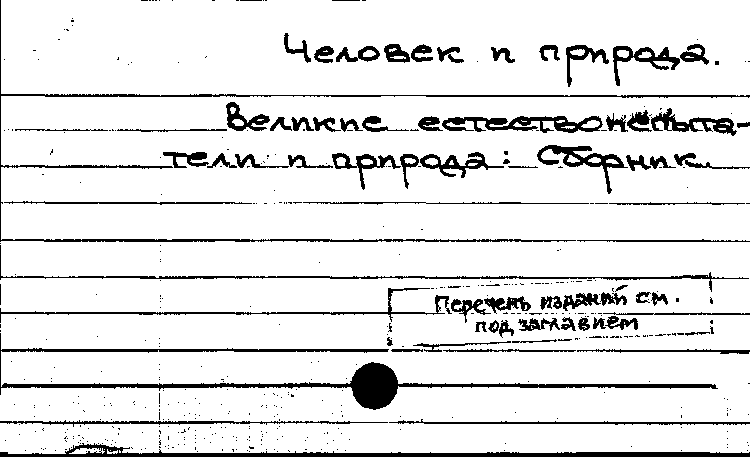 Человек и природа.
Великие естествоиспыта-
тели и природа: Сборник.
Перечень изданий см.
под заглавием